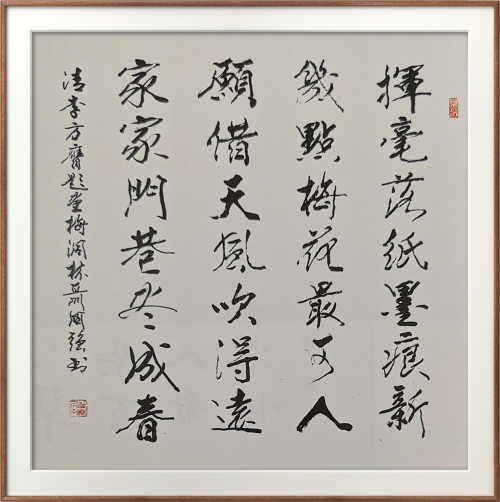 揮毫落紙墨痕新
幾點梅花最可人
願借天風吹得遠
家家門巷尽成春
清李方膺题画梅国强书